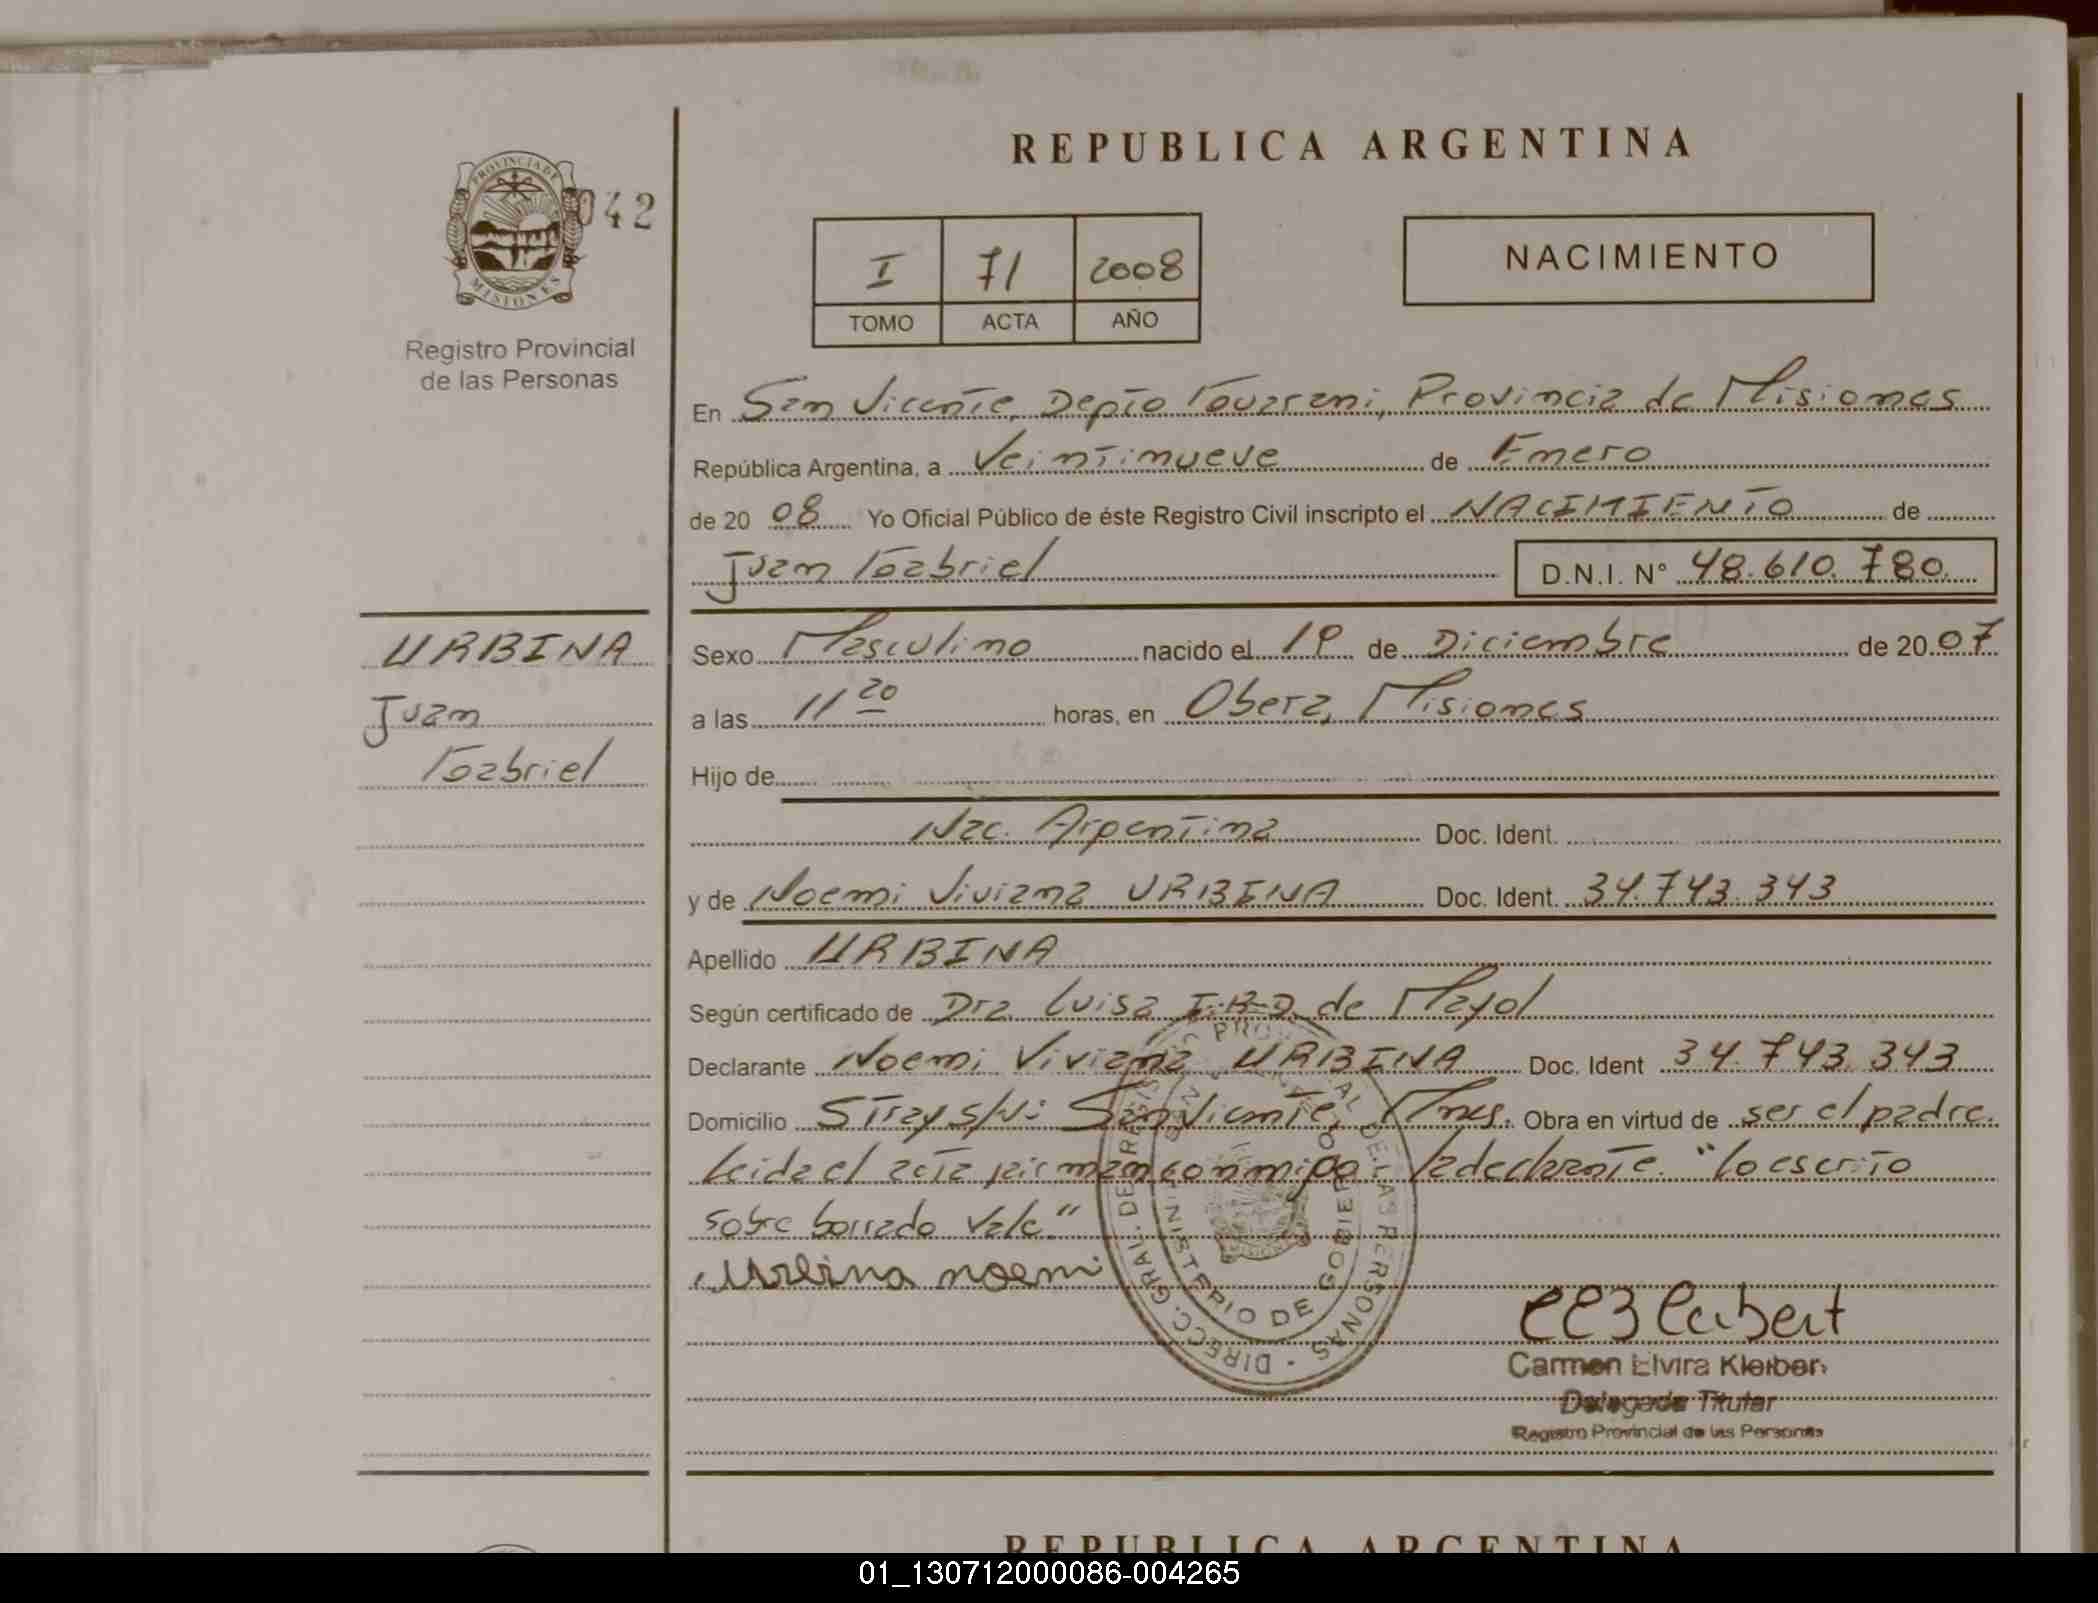 REPUBLICA ARGENTINA
PROVINCIA DE MISIONES
042
I 71 2008
TOMO ACTA AÑO
NACIMIENTO
Registro Provincial
de las Personas
En San Vicente, Depto Guarani, Provincia de Misiones
República Argentina, a Veintinueve de Enero
de 20 08 Yo Oficial Público de éste Registro Civil inscripto el NACIMIENTO de
Juan Gabriel D.N.I. N° 48.610.780
URBINA
Juan
Gabriel
Sexo Masculino nacido el 19 de Diciembre de 2007
a las 11 20 horas, en Obera, Misiones
Hijo de
Nac. Argentina Doc. Ident.
y de Noemi Viviana URBINA Doc. Ident. 34.743.343
Apellido URBINA
Según certificado de Dra. Luisa I.B.D. de Mayol
Declarante Noemi Viviana URBINA Doc. Ident 34.743.343
Domicilio Stray s/N: San Vicente, Mnes. Obra en virtud de ser el padre.
Leida el acta firman conmigo: la declarante. "Lo escrito
sobre borrado Vale"
Urbina noemi
DIRECC. GRAL. DE REGISTRO PROVINCIAL DE LAS PERSONAS
MINISTERIO DE GOBIERNO
Carmen Elvira Kleiber
Delegada Titular
Registro Provincial de las Personas
REPUBLICA ARGENTINA
01_130712000086-004265